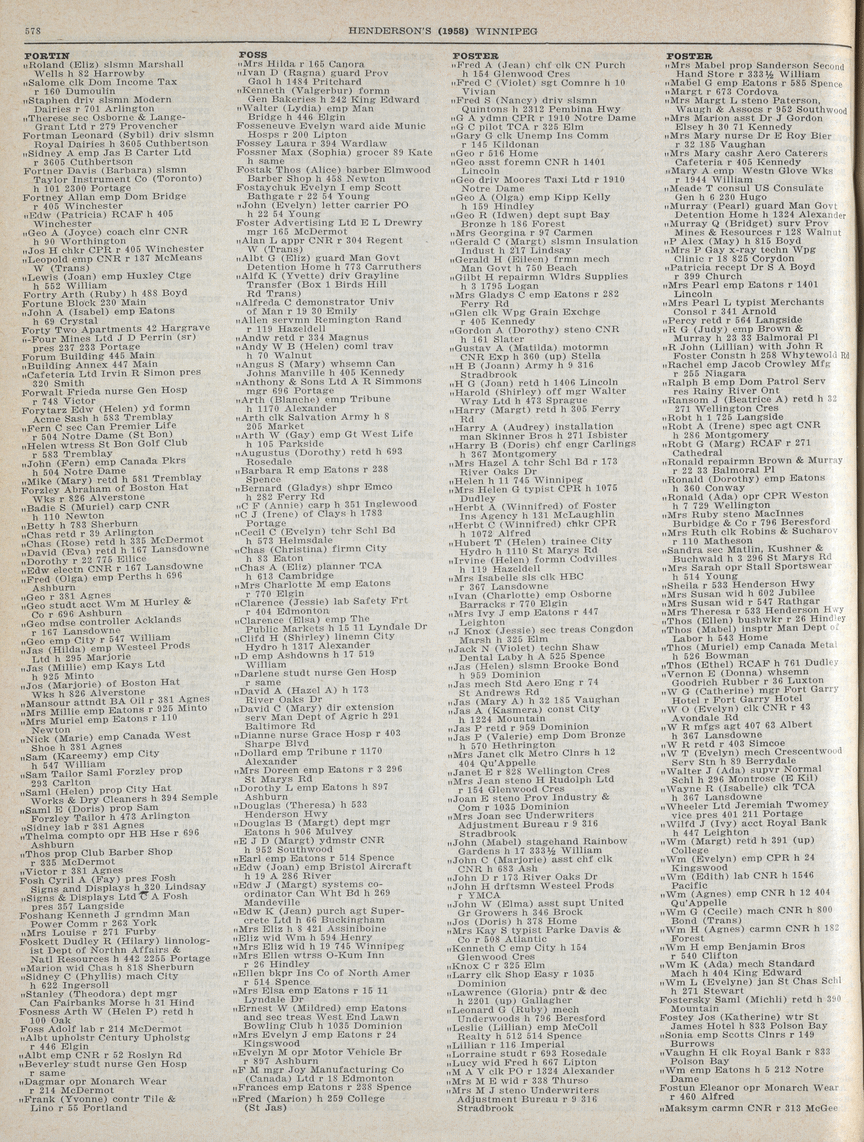 578
HENDERSON'S (1958) WINNIPEG
FORTIN
„Roland (Eliz) slsmn Marshall
Wells h 82 Harrowby
„Salome clk Dom Income Tax
r 160 Dumoulin
„Staphen driv slsmn Modern
Dairies r 701 Arlington
„Therese sec Osborne & Lange-
Grant Ltd r 279 Provencher
Fortman Leonard (Sybil) driv slsmn
Royal Dairies h 3605 Cuthbertson
„Sidney A emp Jas B Carter Ltd
r 3605 Cuthbertson
Fortner Davis (Barbara) slsmn
Taylor Instrument Co (Toronto)
h 101 2300 Portage
Fortney Allan emp Dom Bridge
r 405 Winchester
„Edw (Patricia) RCAF h 405
Winchester
„Geo A (Joyce) coach clnr CNR
h 90 Worthington
„Jos H chkr CPR r 405 Winchester
„Leopold emp CNR r 137 McMeans
W (Trans)
„Lewis (Joan) emp Huxley Ctge
h 552 William
Fortry Arth (Ruby) h 488 Boyd
Fortune Block 230 Main
„John A (Isabel) emp Eatons
h 69 Crystal
Forty Two Apartments 42 Hargrave
„-Four Mines Ltd J D Perrin (sr)
pres 237 233 Portage
Forum Building 445 Main
„Building Annex 447 Main
„Cafeteria Ltd Irvin R Simon pres
320 Smith
Forwalt Frieda nurse Gen Hosp
r 748 Victor
Forytarz Edw (Helen) yd formn
Acme Sash h 583 Tremblay
„Fern C sec Can Premier Life
r 504 Notre Dame (St Bon)
„Helen wtress St Bon Golf Club
r 583 Tremblay
„John (Fern) emp Canada Pkrs
h 504 Notre Dame
„Mike (Mary) retd h 581 Tremblay
Forzley Abraham of Boston Hat
Wks r 826 Alverstone
„Badie S (Muriel) carp CNR
h 110 Newton
„Betty h 783 Sherburn
„Chas retd r 39 Arlington
„Chas (Rose) retd h 335 McDermot
„David (Eva) retd h 167 Lansdowne
„Dorothy r 22 775 Ellice
„Edw electn CNR r 167 Lansdowne
„Fred (Olga) emp Perths h 696
Ashburn
„Geo r 381 Agnes
„Geo studt acct Wm M Hurley &
Co r 696 Ashburn
„Geo mdse controller Acklands
r 167 Lansdowne
„Geo emp City r 547 William
„Jas (Hilda) emp Westeel Prods
Ltd h 295 Marjorie
„Jas (Millie) emp Kays Ltd
h 925 Minto
„Jos (Marjorie) of Boston Hat
Wks h 826 Alverstone
„Mansour attndt BA Oil r 381 Agnes
„Mrs Millie emp Eatons r 925 Minto
„Mrs Muriel emp Eatons r 110
Newton
„Nick (Marie) emp Canada West
Shoe h 381 Agnes
„Sam (Kareemy) emp City
h 547 William
„Sam Tailor Saml Forzley prop
293 Carlton
„Saml (Helen) prop City Hat
Works & Dry Cleaners h 394 Semple
„Saml E (Doris) prop Sam
Forzley Tailor h 473 Arlington
„Sidney lab r 381 Agnes
„Thelma compto opr HB Hse r 696
Ashburn
„Thos prop Club Barber Shop
r 335 McDermot
„Victor r 381 Agnes
Fosh Cyril A (Fay) pres Fosh
Signs and Displays h 320 Lindsay
„Signs & Displays Ltd C A Fosh
pres 357 Langside
Foshang Kenneth J grndmn Man
Power Comm r 263 York
„Mrs Louise r 271 Furby
Foskett Dudley R (Hilary) linnolog-
ist Dept of Northn Affairs &
Natl Resources h 442 2255 Portage
„Marion wid Chas h 818 Sherburn
„Sidney C (Phyllis) mach City
h 622 Ingersoll
„Stanley (Theodora) dept mgr
Can Fairbanks Morse h 31 Hind
Fosness Arth W (Helen P) retd h
100 Oak
Foss Adolf lab r 214 McDermot
„Albt upholstr Century Upholstg
r 446 Elgin
„Albt emp CNR r 52 Roslyn Rd
„Beverley studt nurse Gen Hosp
r same
„Dagmar opr Monarch Wear
r 214 McDermot
„Frank (Yvonne) contr Tile &
Lino r 55 Portland
FOSS
„Mrs Hilda r 165 Canora
„Ivan D (Ragna) guard Prov
Gaol h 1484 Pritchard
„Kenneth (Valgerbur) formn
Gen Bakeries h 242 King Edward
„Walter (Lydia) emp Man
Bridge h 446 Elgin
Fosseneuve Evelyn ward aide Munic
Hosps r 200 Lipton
Fossey Laura r 394 Wardlaw
Fossner Max (Sophia) grocer 89 Kate
h same
Fostak Thos (Alice) barber Elmwood
Barber Shop h 458 Newton
Fostaychuk Evelyn I emp Scott
Bathgate r 22 54 Young
„John (Evelyn) letter carrier PO
h 22 54 Young
Foster Advertising Ltd E L Drewry
mgr 165 McDermot
„Alan L appr CNR r 304 Regent
W (Trans)
„Albt G (Eliz) guard Man Govt
Detention Home h 773 Carruthers
„Alfd K (Yvette) driv Grayline
Transfer (Box 1 Birds Hill
Rd Trans)
„Alfreda C demonstrator Univ
of Man r 19 30 Emily
„Allen servmn Remington Rand
r 119 Hazeldell
„Andw retd r 334 Magnus
„Andy W B (Helen) coml trav
h 70 Walnut
„Angus S (Mary) whsemn Can
Johns Manville h 405 Kennedy
„Anthony & Sons Ltd A R Simmons
mgr 696 Portage
„Arth (Blanche) emp Tribune
h 1170 Alexander
„Arth clk Salvation Army h 8
205 Market
„Arth W (Gay) emp Gt West Life
h 105 Parkside
„Augustus (Dorothy) retd h 693
Rosedale
„Barbara R emp Eatons r 238
Spence
„Bernard (Gladys) shpr Emco
h 282 Ferry Rd
„C F (Annie) carp h 351 Inglewood
„C J (Irene) of Clays h 1783
Portage
„Cecil C (Evelyn) tchr Schl Bd
h 573 Helmsdale
„Chas (Christina) firmn City
h 83 Eaton
„Chas A (Eliz) planner TCA
h 613 Cambridge
„Mrs Charlotte M emp Eatons
r 770 Elgin
„Clarence (Jessie) lab Safety Frt
r 404 Edmonton
„Clarence (Elsa) emp The
Public Markets h 15 11 Lyndale Dr
„Clifd H (Shirley) linemn City
Hydro h 1317 Alexander
„D emp Ashdowns h 17 519
William
„Darlene studt nurse Gen Hosp
r same
„David A (Hazel A) h 173
River Oaks Dr
„David C (Mary) dir extension
serv Man Dept of Agric h 291
Baltimore Rd
„Dianne nurse Grace Hosp r 403
Sharpe Blvd
„Dollard emp Tribune r 1170
Alexander
„Mrs Doreen emp Eatons r 3 296
St Marys Rd
„Dorothy L emp Eatons h 897
Ashburn
„Douglas (Theresa) h 533
Henderson Hwy
„Douglas B (Margt) dept mgr
Eatons h 906 Mulvey
„E J D (Margt) ydmstr CNR
h 952 Southwood
„Earl emp Eatons r 514 Spence
„Edw (Joan) emp Bristol Aircraft
h 19 A 286 River
„Edw J (Margt) systems co-
ordinator Can Wht Bd h 269
Mandeville
„Edw K (Jean) purch agt Super-
crete Ltd h 66 Buckingham
„Mrs Eliz h 8 421 Assiniboine
„Eliz wid Wm h 594 Henry
„Mrs Eliz wid h 19 745 Winnipeg
„Mrs Ellen wtrss O-Kum Inn
r 26 Hindley
„Ellen bkpr Ins Co of North Amer
r 514 Spence
„Mrs Elsa emp Eatons r 15 11
Lyndale Dr
„Ernest W (Mildred) emp Eatons
and sec treas West End Lawn
Bowling Club h 1035 Dominion
„Mrs Evelyn J emp Eatons r 24
Kingswood
„Evelyn M opr Motor Vehicle Br
r 897 Ashburn
„F M mgr Joy Manufacturing Co
(Canada) Ltd r 18 Edmonton
„Frances emp Eatons r 238 Spence
„Fred (Marion) h 259 College
(St Jas)
FOSTER
„Fred A (Jean) chf clk CN Purch
h 154 Glenwood Cres
„Fred C (Violet) sgt Comnre h 10
Vivian
„Fred S (Nancy) driv slsmn
Quintons h 2312 Pembina Hwy
„G A ydmn CPR r 1910 Notre Dame
„G C pilot TCA r 325 Elm
„Gary G clk Unemp Ins Comm
r 145 Kildonan
„Geo r 516 Home
„Geo asst foremn CNR h 1401
Lincoln
„Geo driv Moores Taxi Ltd r 1910
Notre Dame
„Geo A (Olga) emp Kipp Kelly
h 159 Hindley
„Geo R (Idwen) dept supt Bay
Bronze h 186 Forest
„Mrs Georgina r 97 Carmen
„Gerald C (Margt) slsmn Insulation
Indust h 217 Lindsay
„Gerald H (Eileen) frmn mech
Man Govt h 750 Beach
„Gilbt H repairmn Wldrs Supplies
h 3 1795 Logan
„Mrs Gladys C emp Eatons r 282
Ferry Rd
„Glen clk Wpg Grain Exchge
r 405 Kennedy
„Gordon A (Dorothy) steno CNR
h 161 Slater
„Gustav A (Matilda) motormn
CNR Exp h 360 (up) Stella
„H B (Joann) Army h 9 316
Stradbrook
„H G (Joan) retd h 1406 Lincoln
„Harold (Shirley) off mgr Walter
Wray Ltd h 473 Sprague
„Harry (Margt) retd h 305 Ferry
Rd
„Harry A (Audrey) installation
man Skinner Bros h 271 Isbister
„Harry B (Doris) chf engr Carlings
h 367 Montgomery
„Mrs Hazel A tchr Schl Bd r 173
River Oaks Dr
„Helen h 11 745 Winnipeg
„Mrs Helen G typist CPR h 1075
Dudley
„Herbt A (Winnifred) of Foster
Ins Agency h 131 McLaughlin
„Herbt C (Winnifred) chkr CPR
h 1072 Alfred
„Hubert T (Helen) trainee City
Hydro h 1110 St Marys Rd
„Irvine (Helen) formn Codvilles
h 119 Hazeldell
„Mrs Isabelle sls clk HBC
r 367 Lansdowne
„Ivan (Charlotte) emp Osborne
Barracks r 770 Elgin
„Mrs Ivy J emp Eatons r 447
Leighton
„J Knox (Jessie) sec treas Congdon
Marsh h 325 Elm
„Jack N (Violet) techn Shaw
Dental Laby h A 525 Spence
„Jas (Helen) slsmn Brooke Bond
h 959 Dominion
„Jas mech Std Aero Eng r 74
St Andrews Rd
„Jas (Mary A) h 32 185 Vaughan
„Jas A (Kasmera) const City
h 1224 Mountain
„Jas P retd r 959 Dominion
„Jas P (Valerie) emp Dom Bronze
h 570 Hethrington
„Mrs Janet clk Metro Clnrs h 12
404 Qu'Appelle
„Janet E r 828 Wellington Cres
„Mrs Jean steno H Rudolph Ltd
r 154 Glenwood Cres
„Joan E steno Prov Industry &
Com r 1035 Dominion
„Mrs Joan sec Underwriters
Adjustment Bureau r 9 316
Stradbrook
„John (Mabel) stagehand Rainbow
Gardens h 17 333½ William
„John C (Marjorie) asst chf clk
CNR h 683 Ash
„John D r 173 River Oaks Dr
„John H drftsmn Westeel Prods
r YMCA
„John W (Elma) asst supt United
Gr Growers h 346 Brock
„Jos (Doris) h 378 Home
„Mrs Kay S typist Parke Davis &
Co r 508 Atlantic
„Kenneth C emp City h 154
Glenwood Cres
„Knox C r 325 Elm
„Larry clk Shop Easy r 1035
Dominion
„Lawrence (Gloria) pntr & dec
h 2201 (up) Gallagher
„Leonard G (Ruby) mech
Underwoods h 796 Beresford
„Leslie (Lillian) emp McColl
Realty h 512 514 Spence
„Lillian r 116 Imperial
„Lorraine studt r 693 Rosedale
„Lucy wid Fred h 667 Lipton
„M A V clk PO r 1324 Alexander
„Mrs M E wid r 338 Thurso
„Mrs M J steno Underwriters
Adjustment Bureau r 9 316
Stradbrook
FOSTER
„Mrs Mabel prop Sanderson Second
Hand Store r 333½ William
„Mabel G emp Eatons r 585 Spence
„Margt r 673 Cordova
„Mrs Margt L steno Paterson,
Waugh & Assocs r 952 Southwood
„Mrs Marion asst Dr J Gordon
Elsey h 30 71 Kennedy
„Mrs Mary nurse Dr E Roy Bier
r 32 185 Vaughan
„Mrs Mary cashr Aero Caterers
Cafeteria r 405 Kennedy
„Mary A emp Westn Glove Wks
r 1944 William
„Meade T consul US Consulate
Gen h 6 230 Hugo
„Murray (Pearl) guard Man Govt
Detention Home h 1324 Alexander
„Murray Q (Bridget) surv Prov
Mines & Resources r 128 Walnut
„P Alex (May) h 815 Boyd
„Mrs P Gay x-ray techn Wpg
Clinic r 18 825 Corydon
„Patricia recept Dr S A Boyd
r 399 Church
„Mrs Pearl emp Eatons r 1401
Lincoln
„Mrs Pearl L typist Merchants
Consol r 341 Arnold
„Percy retd r 564 Langside
„R G (Judy) emp Brown &
Murray h 23 33 Balmoral Pl
„R John (Lillian) with John R
Foster Constn h 258 Whytewold Rd
„Rachel emp Jacob Crowley Mfg
r 255 Niagara
„Ralph B emp Dom Patrol Serv
res Rainy River Ont
„Ransom J (Beatrice A) retd h 32
271 Wellington Cres
„Robt h 1 725 Langside
„Robt A (Irene) spec agt CNR
h 286 Montgomery
„Robt G (Marg) RCAF r 271
Cathedral
„Ronald repairmn Brown & Murray
r 22 33 Balmoral Pl
„Ronald (Dorothy) emp Eatons
h 360 Conway
„Ronald (Ada) opr CPR Weston
h 7 729 Wellington
„Mrs Ruby steno MacInnes
Burbidge & Co r 796 Beresford
„Mrs Ruth clk Robins & Sucharov
r 110 Matheson
„Sandra sec Matlin, Kushner &
Buchwald h 3 296 St Marys Rd
„Mrs Sarah opr Stall Sportswear
h 514 Young
„Sheila r 533 Henderson Hwy
„Mrs Susan wid h 602 Jubilee
„Mrs Susan wid r 547 Rathgar
„Mrs Theresa r 533 Henderson Hwy
„Thos (Ellen) bushwkr r 26 Hindley
„Thos (Mabel) insptr Man Dept of
Labor h 543 Home
„Thos (Muriel) emp Canada Metal
h 526 Bowman
„Thos (Ethel) RCAF h 761 Dudley
„Vernon E (Donna) whsemn
Goodrich Rubber r 36 Luxton
„W G (Catherine) mgr Fort Garry
Hotel r Fort Garry Hotel
„W O (Evelyn) clk CNR r 43
Avondale Rd
„W R mfgs agt 407 63 Albert
h 367 Lansdowne
„W R retd r 403 Simcoe
„W T (Evelyn) mech Crescentwood
Serv Stn h 89 Berrydale
„Walter J (Ada) supvr Normal
Schl h 296 Montrose (E Kil)
„Wayne R (Isabelle) clk TCA
h 367 Lansdowne
„Wheeler Ltd Jeremiah Twomey
vice pres 401 211 Portage
„Wilfd J (Ivy) acct Royal Bank
h 447 Leighton
„Wm (Margt) retd h 391 (up)
College
„Wm (Evelyn) emp CPR h 24
Kingswood
„Wm (Edith) lab CNR h 1546
Pacific
„Wm (Agnes) emp CNR h 12 404
Qu'Appelle
„Wm G (Cecile) mach CNR h 800
Bond (Trans)
„Wm H (Agnes) carmn CNR h 182
Forest
„Wm H emp Benjamin Bros
r 540 Clifton
„Wm K (Ada) mech Standard
Mach h 404 King Edward
„Wm L (Evelyne) jan St Chas Schl
h 271 Stewart
Fostersky Saml (Michli) retd h 390
Mountain
Fostey Jos (Katherine) wtr St
James Hotel h 833 Polson Bay
„Sonia emp Scotts Clnrs r 149
Burrows
„Vaughn H clk Royal Bank r 833
Polson Bay
„Wm emp Eatons h 5 212 Notre
Dame
Fostun Eleanor opr Monarch Wear
r 460 Alfred
„Maksym carmn CNR r 313 McGee